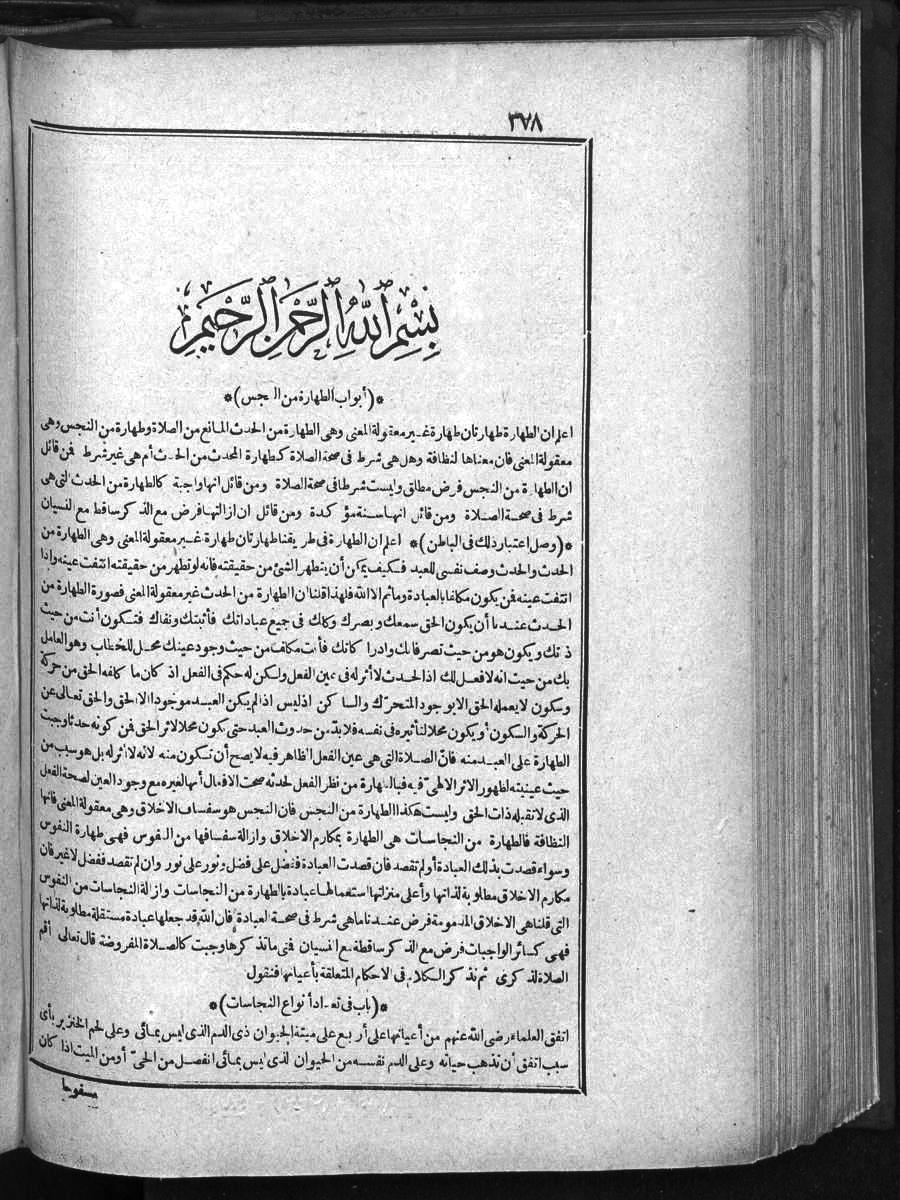 ٣٧٨
بسم الله الرحمن الرحيم
*(أبواب الطهارة من النجس)*
اعلم ان الطهارة طهارتان طهارة غير معقولة المعنى وهى الطهارة من الحدث المانع من الصلاة وطهارة من النجس وهى
معقولة المعنى فان معناها النظافة وهل هى شرط فى صحة الصلاة كطهارة المحدث من الحدث أم هى غير شرط فمن قائل
ان الطهارة من النجس فرض مطلق وليست شرطا فى صحة الصلاة ومن قائل انها واجبة كالطهارة من الحدث التى هى
شرط فى صحة الصلاة ومن قائل انها سنة مؤكدة ومن قائل ان ازالتها فرض مع الذكر ساقط مع النسيان
*(وصل اعتبار ذلك فى الباطن)* اعلم ان الطهارة فى طريقنا طهارتان طهارة غير معقولة المعنى وهى الطهارة من
الحدث والحدث وصف نفسى للعبد فكيف يمكن أن يتطهر الشئ من حقيقته فانه لو تطهر من حقيقته انتفت عينه واذا
انتفت عينه فمن يكون مكلفا بالعبادة وما ثم الا الله فلهذا قلنا ان الطهارة من الحدث غير معقولة المعنى فصورة الطهارة من
الحدث عندنا أن يكون الحق سمعك وبصرك وكلك فى جميع عباداتك فأثبتك ونفاك فتكون أنت من حيث
ذاتك ويكون هو من حيث تصرفاتك وادراكاتك فأنت مكلف من حيث وجود عينك محل للخطاب وهو العامل
بك من حيث انه لا فعل لك اذ الحدث لا أثر له فى عين الفعل ولكن له حكم فى الفعل اذ كان ما كلفه الحق من حركة
وسكون لا يعمله الحق الا بوجود المتحرّك والساكن اذ ليس اذ لم يكن العبد موجودا الا الحق والحق تعالى عن
الحركة والسكون أو يكون محلا لتأثيره فى نفسه فلا بد من حدوث العبد حتى يكون محلا لاثر الحق فمن كونه حدثا وجبت
الطهارة على العبد منه فانّ الصلاة التى هى عين الفعل الظاهر فيه لا يصح أن تكون منه لانه لا أثر له بل هو سبب من
حيث عينيته لظهور الاثر الالهىّ فيه فبالطهارة من نظر الفعل لحدثه صحت الافعال أنها لغيره مع وجود العين لصحة الفعل
الذى لا تقبله ذات الحق وليست هكذا الطهارة من النجس فان النجس هو سفساف الاخلاق وهى معقولة المعنى فانها
النظافة فالطهارة من النجاسات هى الطهارة بمكارم الاخلاق وازالة سفسافها من النفوس فهى طهارة النفوس
وسواء قصدت بذلك العبادة أو لم تقصد فان قصدت العبادة ففضل على فضل ونور على نور وان لم تقصد ففضل لا غير فان
مكارم الاخلاق مطلوبة لذاتها وأعلى منزلتها استعمالها عبادة بالطهارة من النجاسات وازالة النجاسات من النفوس
التى قلناهى الاخلاق المذمومة فرض عندنا ماهى شرط فى صحة العبادة فان الله قد جعلها عبادة مستقلة مطلوبة لذاتها
فهى كسائر الواجبات فرض مع الذكر ساقطة مع النسيان فمتى ما تذكرها وجبت كالصلاة المفروضة قال تعالى أقم
الصلاة لذكرى ثم نذكر الكلام فى الاحكام المتعلقة بأعيانها فنقول
*(باب فى تعداد أنواع النجاسات)*
اتفق العلماء رضى الله عنهم من أعيانها على أربع على ميتة الحيوان ذى الدم الذى ليس بمائى وعلى لحم الخنزير بأى
سبب اتفق أن تذهب حياته وعلى الدم نفسه من الحيوان الذى ليس بمائى انفصل من الحىّ أو من الميت اذا كان
مسفوحا